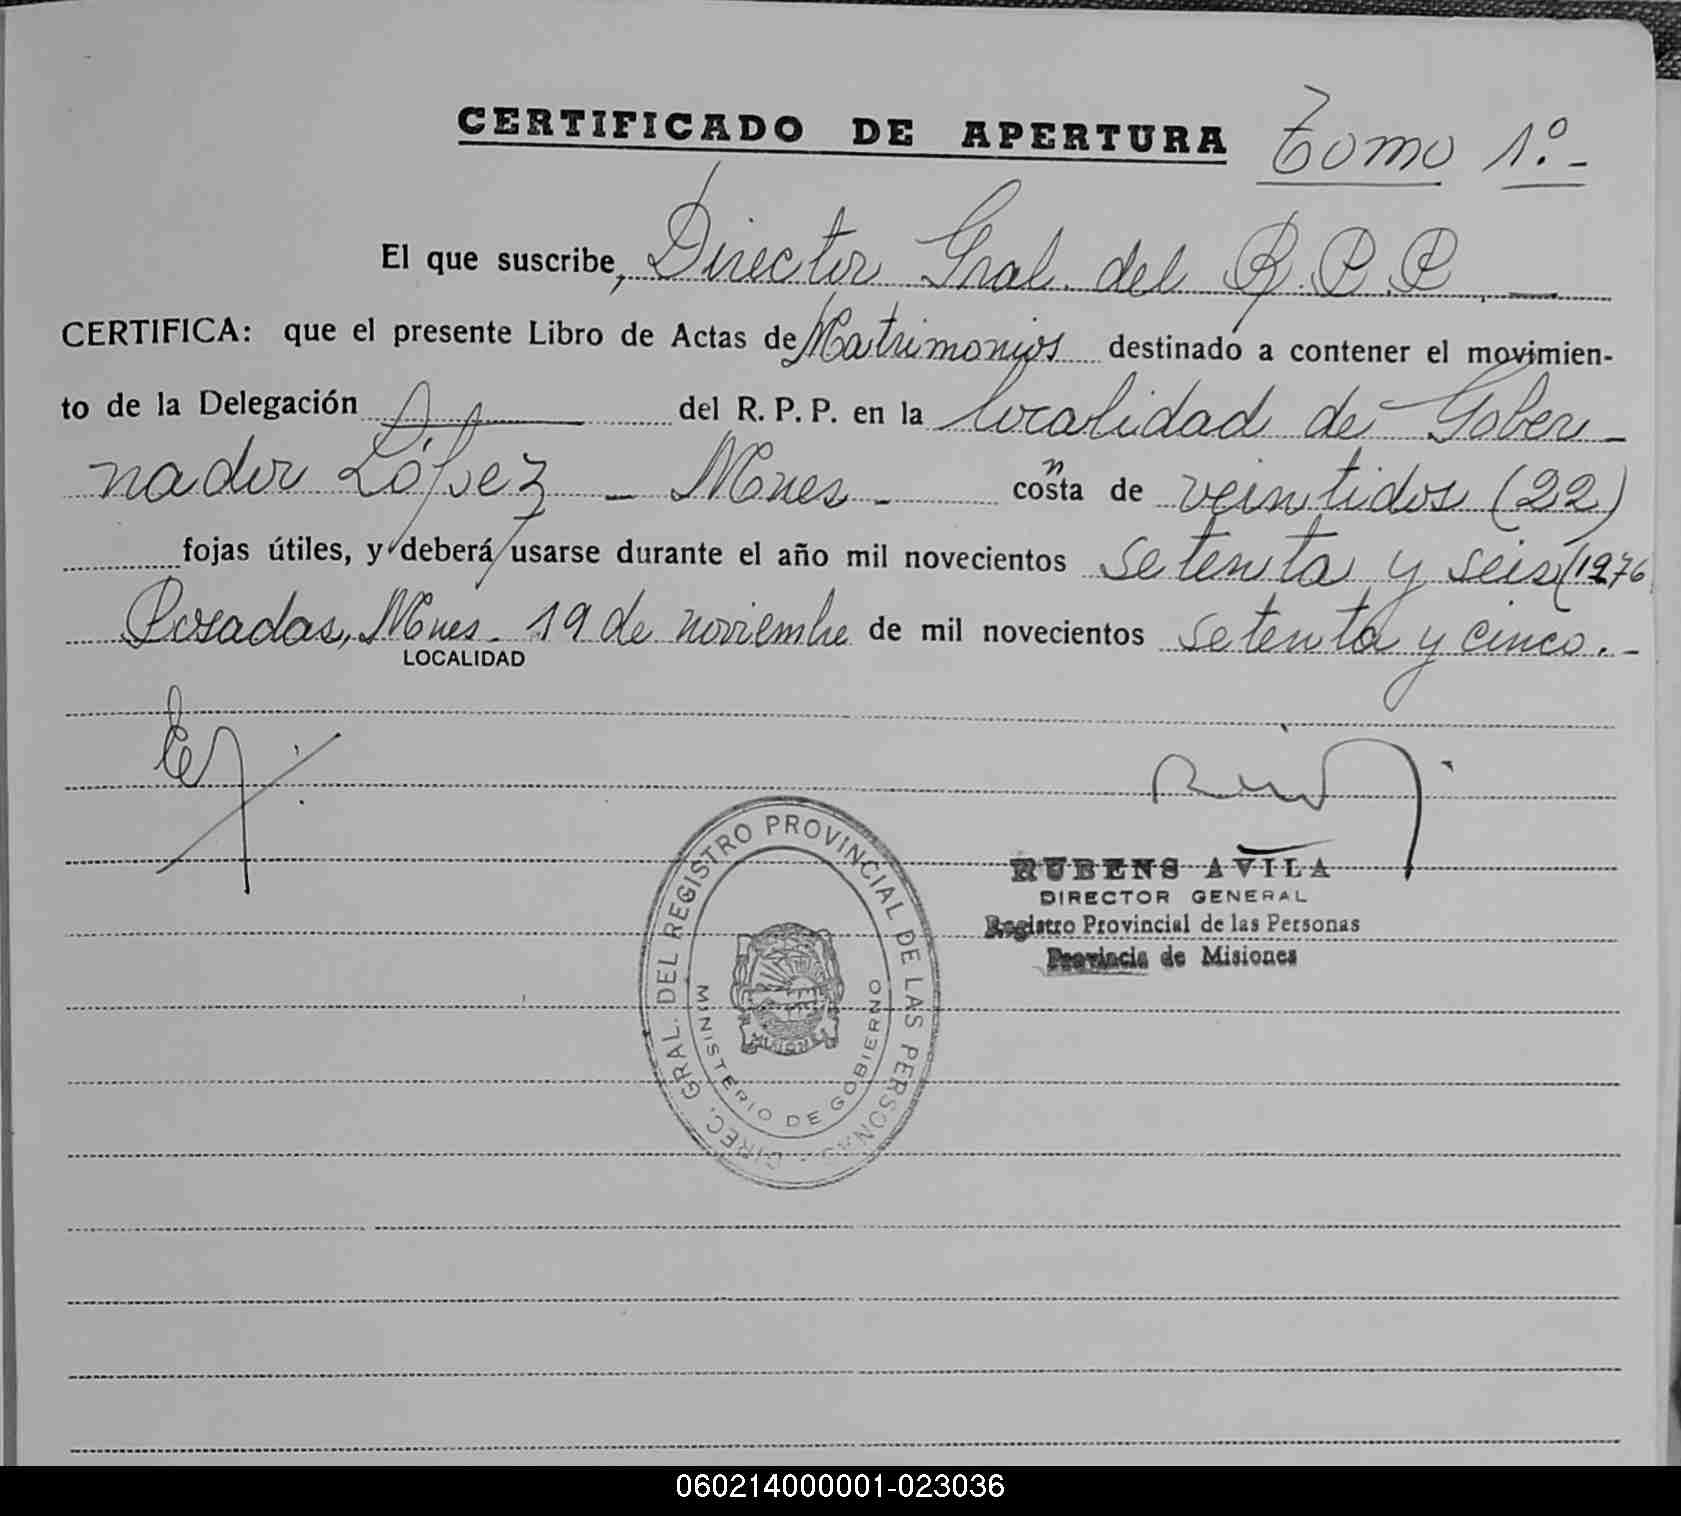 CERTIFICADO DE APERTURA Tomo 1º.-
El que suscribe, Director Gral. del R.P.P.
CERTIFICA: que el presente Libro de Actas de Matrimonios destinado a contener el movimien-
to de la Delegación del R. P. P. en la localidad de Gober-
nador López - Mnes - consta de veintidos (22)
fojas útiles, y deberá usarse durante el año mil novecientos setenta y seis (1976
Posadas, Mnes - 19 de noviembre de mil novecientos setenta y cinco.-
LOCALIDAD
RUBENS AVILA
DIRECTOR GENERAL
Registro Provincial de las Personas
Provincia de Misiones
DIREC. GRAL. DEL REGISTRO PROVINCIAL DE LAS PERSONAS
MINISTERIO DE GOBIERNO
060214000001-023036